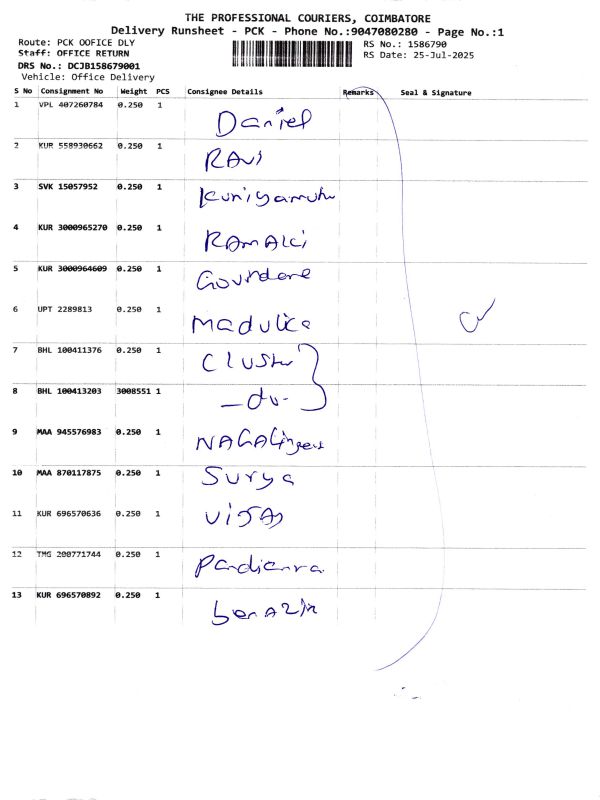 THE PROFESSIONAL COURIERS, COIMBATORE
Delivery Runsheet - PCK - Phone No.:9047080280 - Page No.:1
Route: PCK OOFICE DLY RS No.: 1586790
Staff: OFFICE RETURN RS Date: 25-Jul-2025
DRS No.: DCJB158679001
Vehicle: Office Delivery
S No Consignment No Weight PCS Consignee Details Remarks Seal & Signature
1 VPL 407260784 0.250 1 Daniel
2 KUR 558930662 0.250 1 RAVI
3 SVK 15057952 0.250 1 Kuniyamuthu
4 KUR 3000965270 0.250 1
5 KUR 3000964609 0.250 1
6 UPT 2289813 0.250 1 Madulica
7 BHL 100411376 0.250 1 Cluster
8 BHL 100413203 3008551 1 -do-
9 MAA 945576983 0.250 1
10 MAA 870117875 0.250 1 Surya
11 KUR 696570636 0.250 1 ViJAy
12 TMG 200771744 0.250 1
13 KUR 696570892 0.250 1